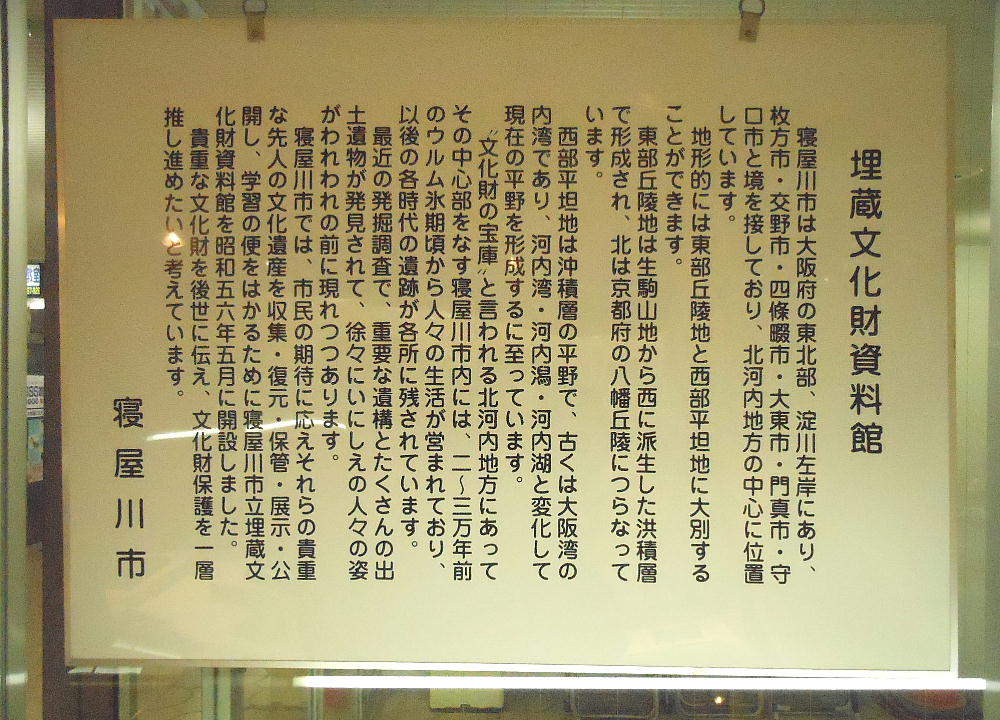 埋蔵文化財資料館
寝屋川市は大阪府の東北部、淀川左岸にあり、
枚方市・交野市・四條畷市・大東市・門真市・守
口市と境を接しており、北河内地方の中心に位置
しています。
地形的には東部丘陵地と西部平坦地に大別する
ことができます。
東部丘陵地は生駒山地から西に派生した洪積層
で形成され、北は京都府の八幡丘陵につらなって
います。
西部平坦地は沖積層の平野で、古くは大阪湾の
内湾であり、河内湾・河内潟・河内湖と変化して
現在の平野を形成するに至っています。
〝文化財の宝庫〟と言われる北河内地方にあって
その中心部をなす寝屋川市内には、二〜三万年前
のウルム氷期頃から人々の生活が営まれており、
以後の各時代の遺跡が各所に残されています。
最近の発掘調査で、重要な遺構とたくさんの出
土遺物が発見されて、徐々にいにしえの人々の姿
がわれわれの前に現れつつあります。
寝屋川市では、市民の期待に応えそれらの貴重
な先人の文化遺産を収集・復元・保管・展示・公
開し、学習の便をはかるために寝屋川市立埋蔵文
化財資料館を昭和五六年五月に開設しました。
貴重な文化財を後世に伝え、文化財保護を一層
推し進めたいと考えています。
寝屋川市